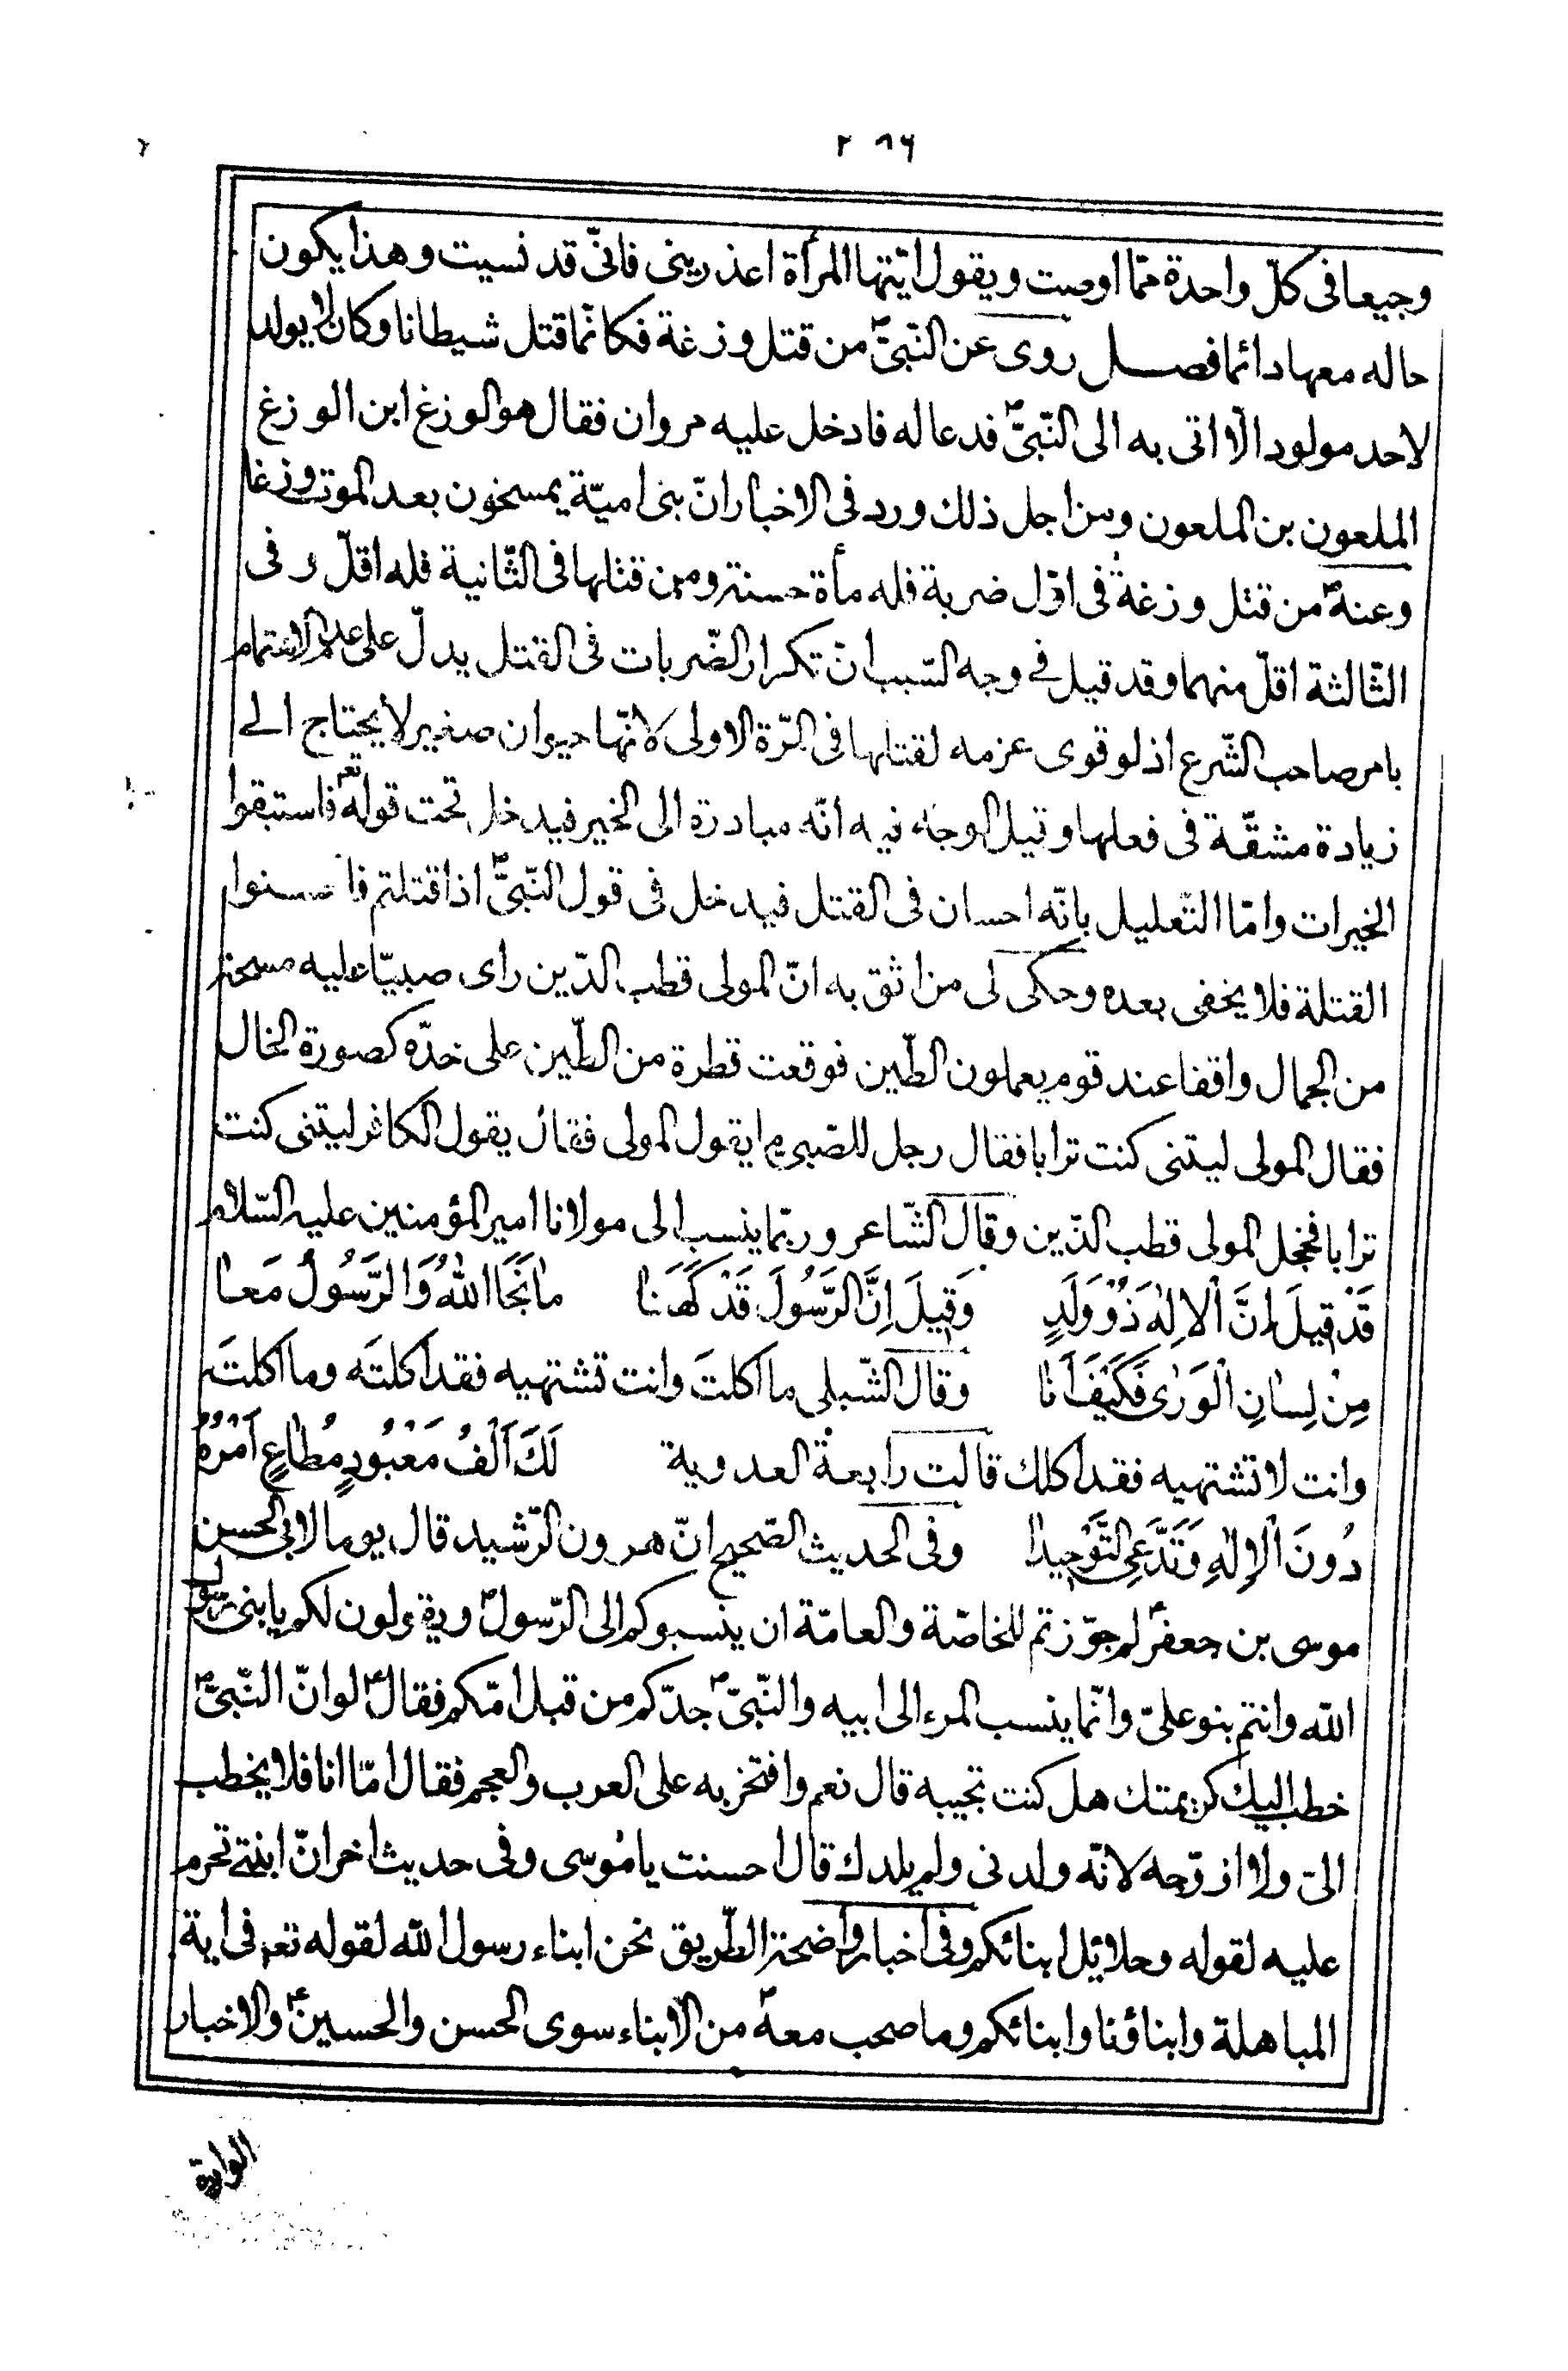 ٢٨٦
وجيعا فى كلّ واحدة ممّا اوصت ويقول ايّتها المرأة اعذرينى فانّى قد نسيت وهذا يكون
حاله معها دائما فصـــل روى عن النّبىّ ص من قتل وزغة فكانّما قتل شيطانا وكان لا يولد
لاحد مولود الّا اتى به الى النّبىّ ص فدعا له فادخل عليه مروان فقال هو الوزغ ابن الوزغ
الملعون بن الملعون ومن اجل ذلك ورد فى الاخبار انّ بنى اميّة يمسخون بعد الموت وزغا
وعنه ص من قتل وزغة فى اوّل ضربة فله مأة حسنة ومن قتلها فى الثّانية فله اقلّ و فى
الثّالثة اقلّ منهما وقد قيل فى وجه السّبب انّ تكرار الضّربات فى القتل يدلّ على عدم الاهتمام
بامر صاحب الشّرع اذ لو قوى عزمه لقتلها فى المرّة الاولى لانّها حيوان صغير لا يحتاج الى
زيادة مشقّة فى فعلها وقيل الوجه فيه انّه مبادرة الى الخير فيدخل تحت قوله تع فاستبقوا
الخيرات وامّا التّعليل بانّه احسان فى القتل فيدخل فى قول النّبىّ ص اذا قتلتم فاحسنوا
القتلة فلا يخفى بعده وحكى لى من اثق به انّ المولى قطب الدّين راى صبيّا عليه مسحة
من الجمال واقفا عند قوم يعملون الطّين فوقعت قطرة من الطّين على خدّه كصورة الخال
فقال المولى ليتنى كنت ترابا فقال رجل للصّبى ما يقول المولى فقال يقول الكافر ليتنى كنت
ترابا فخجل المولى قطب الدّين وقال الشّاعر وربّما ينسب الى مولانا امير المؤمنين عليه السّلام
قَدْ قيلَ اِنَّ الْاِلٰهَ ذُوْ وَلَدٍ وَقيلَ اِنَّ الرَّسُولَ قَدْ كَهَنا مانَجَا اللّٰهُ وَالرَّسُولُ مَعا
مِنْ لِسانِ الْوَرٰى فَكَيْفَ اَنا وقال الشّبلى ما اكلتَ وانت تشتهيه فقد اكلتَه وما اكلتَ
وانت لا تشتهيه فقد اكلك قالت رابعة العدوية لَكَ اَلْفُ مَعْبُودٍ مُطاعٍ اَمْرُهُ
دُونَ الْاِلٰهِ وَتَدَّعِى التَّوْحيدا وفى الحديث الصّحيح انّ هرون الرّشيد قال يوما لابى الحسن
موسى بن جعفر ع لم جوّزتم للخاصّة والعامّة ان ينسبوكم الى الرّسول ص ويقولون لكم يا بنى رسول
اللّه وانتم بنو علىّ وانّما ينسب المرء الى ابيه والنّبىّ ص جدّكم من قبل امّكم فقال ع لو انّ النّبىّ ص
خطب اليك كريمتك هل كنت تجيبه قال نعم وافتخر به على العرب والعجم فقال امّا انا فلا يخطب
الىّ ولا ازوّجه لانّه ولدنى ولم يلدك قال احسنت يا موسى وفى حديث اخر انّ ابنتى تحرم
عليه لقوله وحلائل ابنائكم وفى اخبار واضحة الطّريق نحن ابناء رسول اللّه لقوله تعه فى اية
المباهلة وابناؤنا وابنائكم وما صحب معه ص من الابناء سوى الحسن والحسين ع والاخبار
الواردة